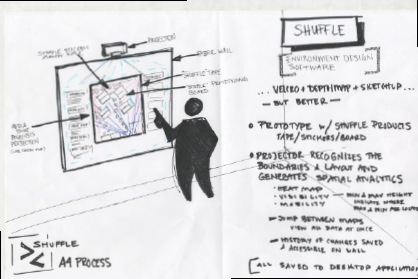 PROJECTION
FIBER WALL
SHUFFLE TAPE
SHUFFLE
PROTOTYPING
BOARD
PROJECTION
SHUFFLE
A4 PROCESS
SHUFFLE
ENVIRONMENT DESIGN
SOFTWARE
... VELCRO + DEPTHMAP + SKETCHUP...
BUT BETTER —
• PROTOTYPE W/ SHUFFLE PRODUCTS
TAPE/STICKERS/BOARD
• PROJECTOR RECOGNIZES THE
BOUNDARIES & LAYOUT AND
GENERATES SPATIAL ANALYTICS
- HEAT MAP
- VISIBILITY
- MOBILITY
MIN & MAX HEIGHT
INDICATE WHERE
- JUMP BETWEEN MAPS
VIEW ALL DATA AT ONCE
- HISTORY OF CHANGES SAVED
& ACCESSIBLE ON WALL
ALL SAVED TO DESKTOP APPLICATION